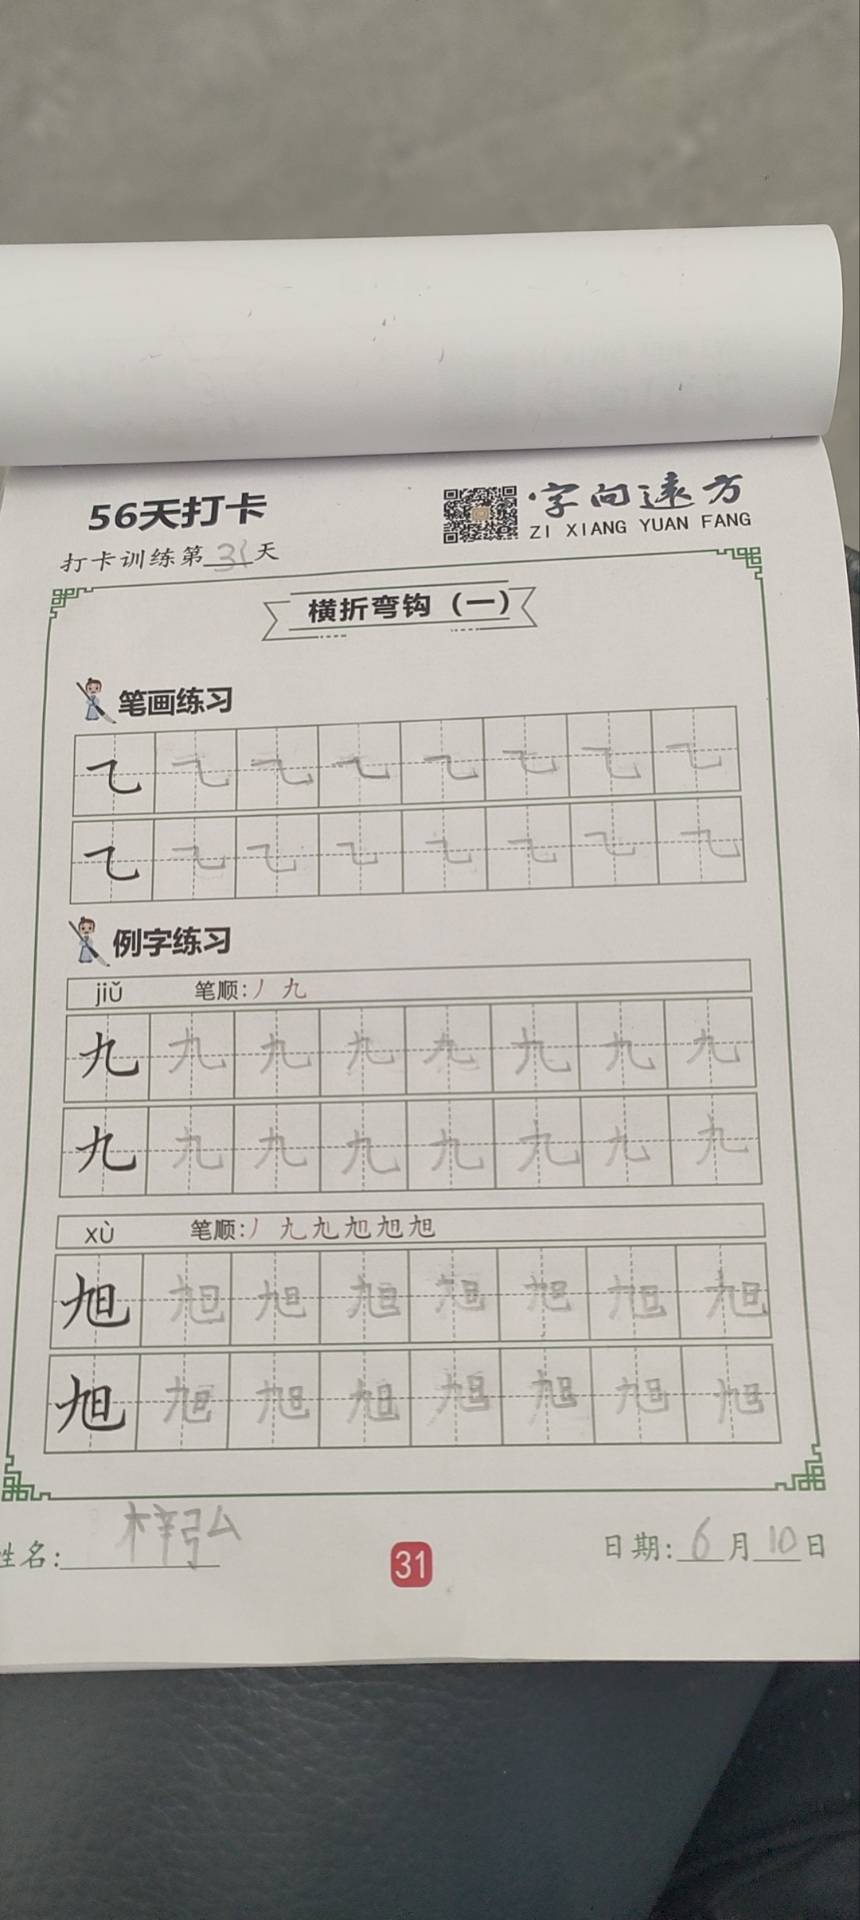 56天打卡
字向远方
ZI XIANG YUAN FANG
打卡训练第31天
横折弯钩（一）
笔画练习
㇈ ㇈ ㇈ ㇈ ㇈ ㇈ ㇈ ㇈
㇈ ㇈ ㇈ ㇈ ㇈ ㇈ ㇈ ㇈
例字练习
jiǔ 笔顺:丿 九
九 九 九 九 九 九 九 九
九 九 九 九 九 九 九 九
xù 笔顺:丿 九 九 旭 旭 旭
旭 旭 旭 旭 旭 旭 旭 旭
旭 旭 旭 旭 旭 旭 旭 旭
姓名:梓弘
31
日期:6月10日